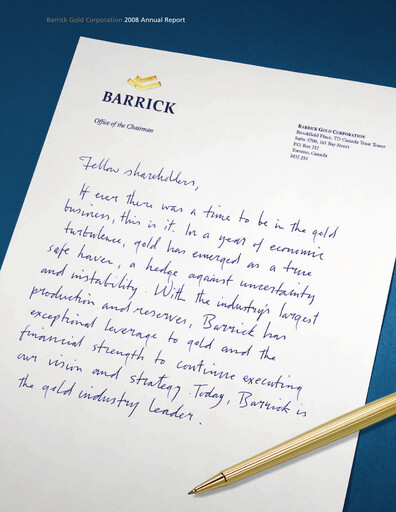 Barrick Gold Corporation 2008 Annual Report
BARRICK
Office of the Chairman
BARRICK GOLD CORPORATION
Brookfield Place, TD Canada Trust Tower
Suite 3700, 161 Bay Street
P.O. Box 212
Toronto, Canada
M5J 2S1
Fellow shareholders,
If ever there was a time to be in the gold
business, this is it. In a year of economic
turbulence, gold has emerged as a true
safe haven, a hedge against uncertainty
and instability. With the industry's largest
production and reserves, Barrick has
exceptional leverage to gold and the
financial strength to continue executing
our vision and strategy. Today, Barrick is
the gold industry leader.